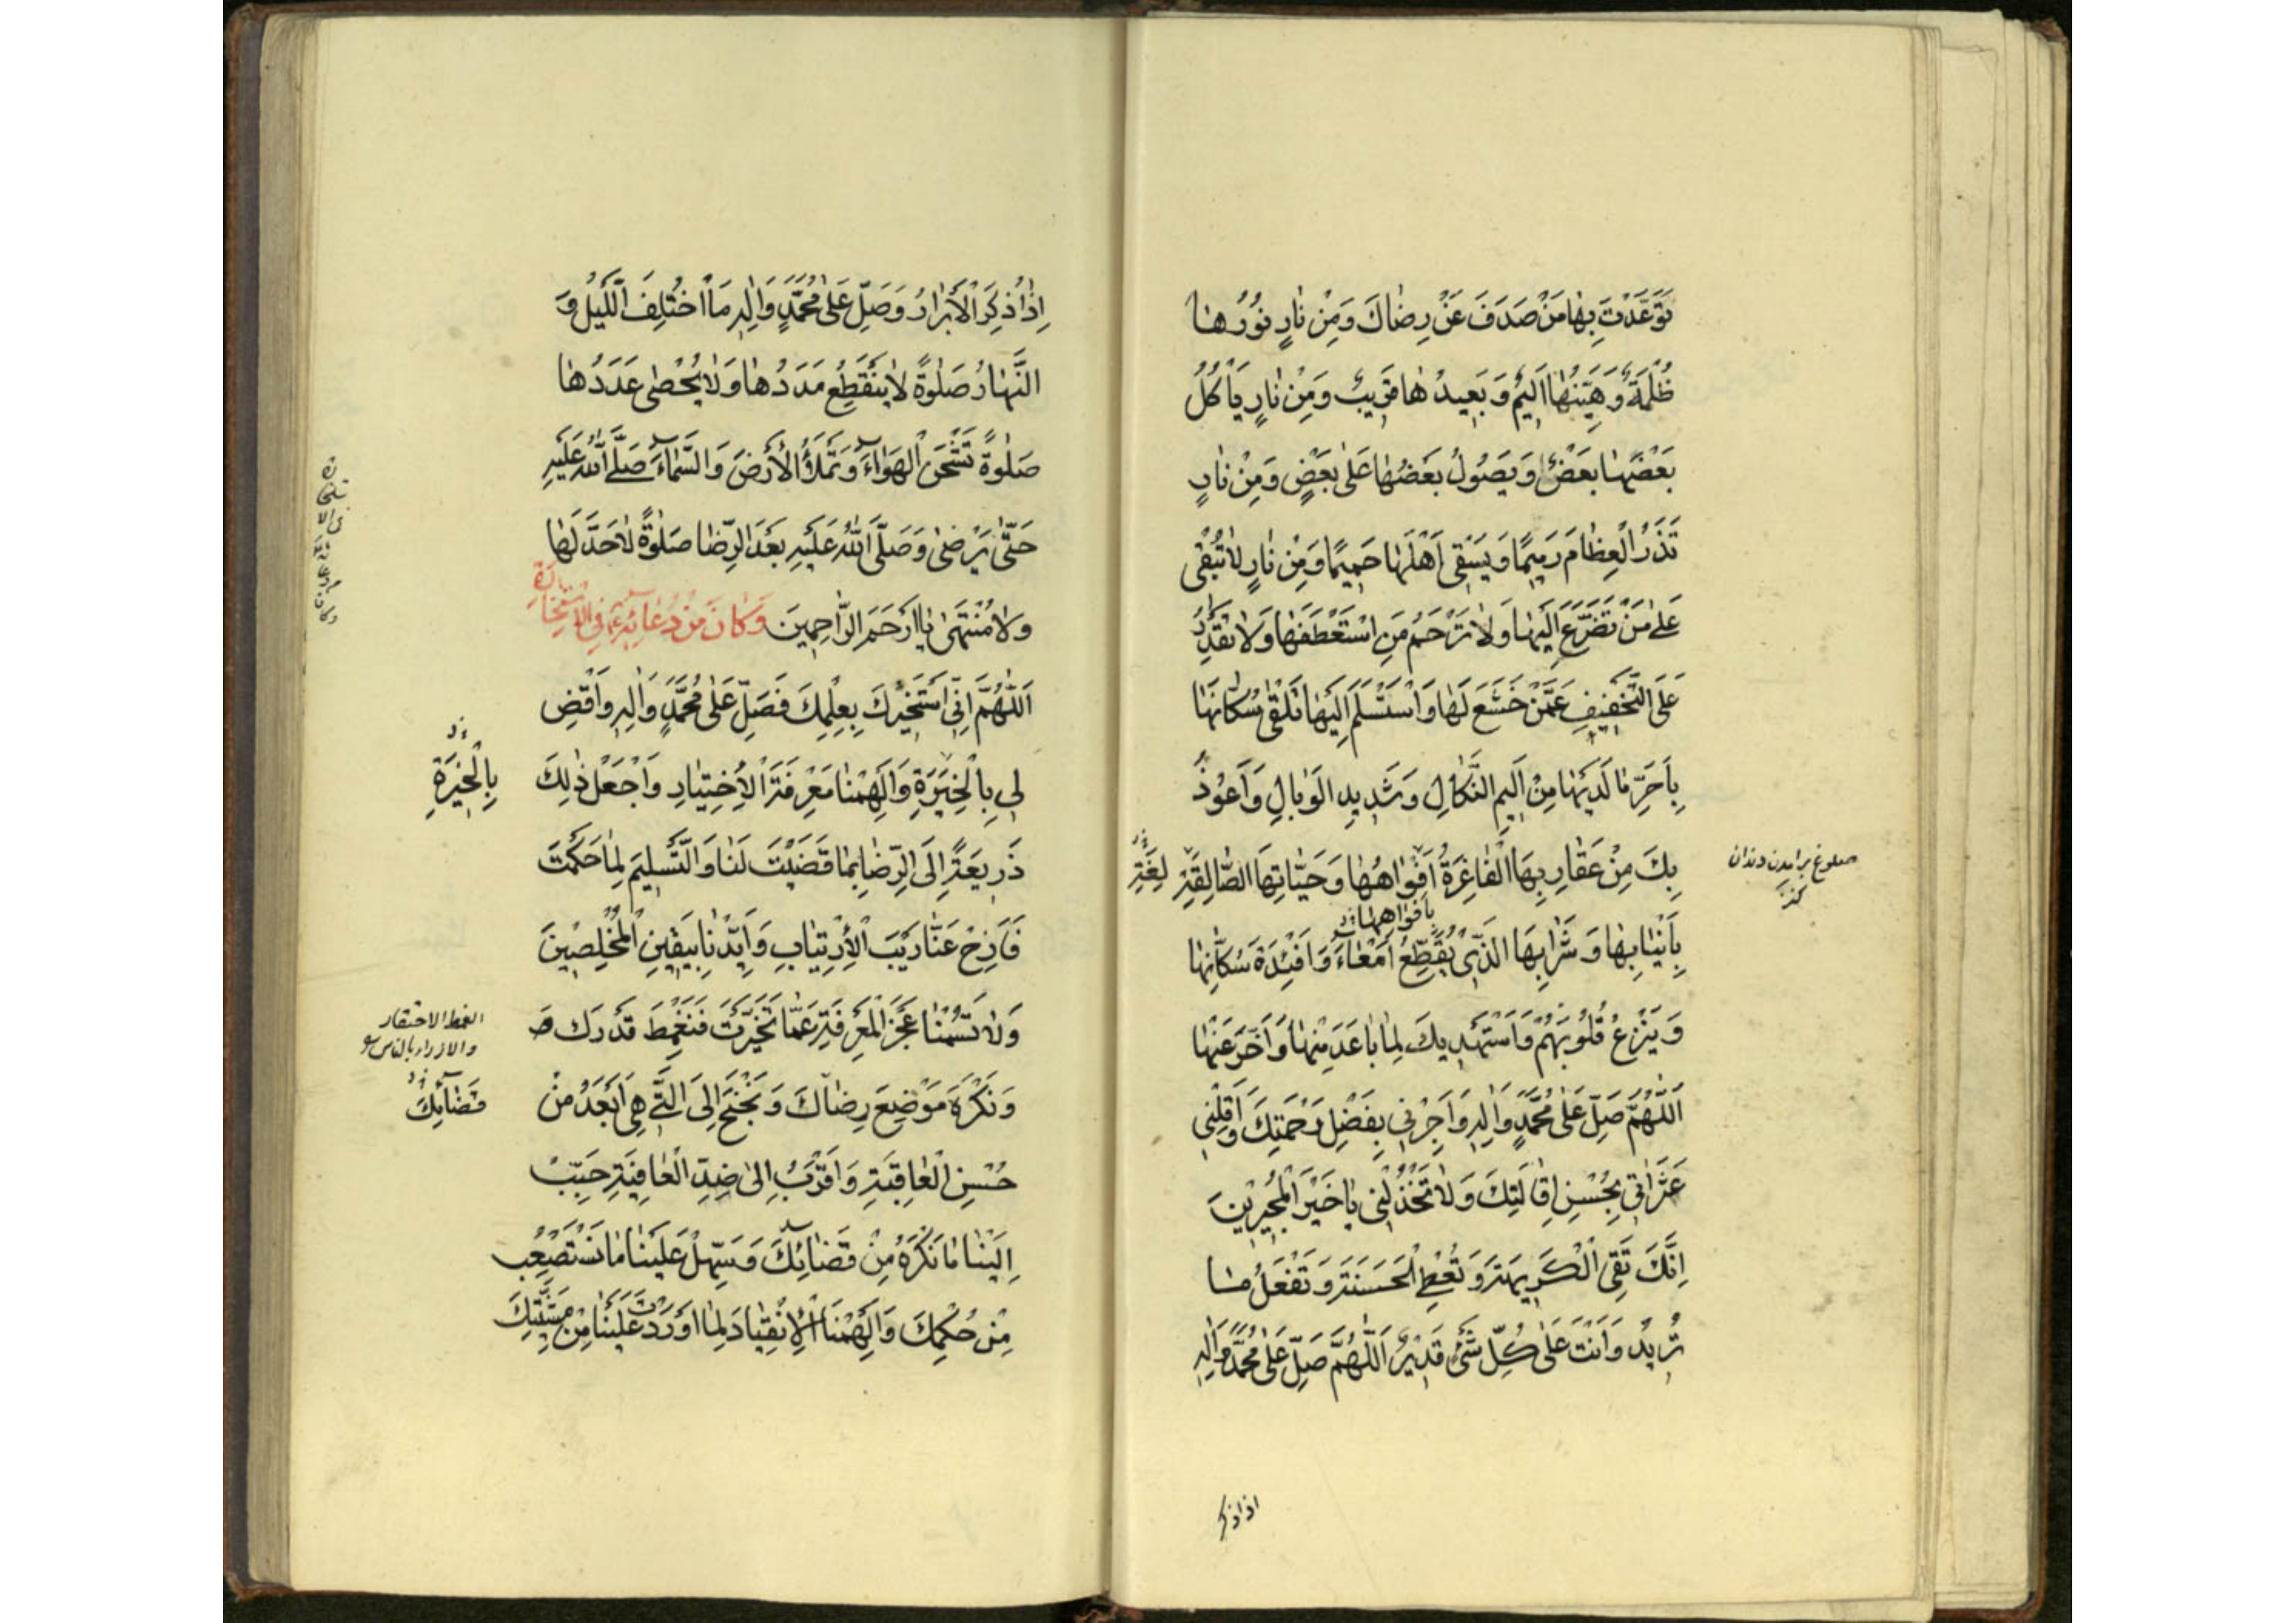 تَوَعَّدْتَ بِهٰا مَنْ صَدَفَ عَنْ رِضٰاكَ وَمِنْ نٰارٍ نُورُهٰا
ظُلْمَةٌ وَهَيِّنُهٰا اَلِيمٌ وَبَعِيدُهٰا قَرِيبٌ وَمِنْ نٰارٍ يَأْكُلُ
بَعْضَهٰا بَعْضٌ وَيَصُولُ بَعْضُهٰا عَلىٰ بَعْضٍ وَمِنْ نٰارٍ
تَذَرُ الْعِظٰامَ رَمِيمًا وَيَسْقِى اَهْلَهٰا حَمِيمًا وَمِنْ نٰارٍ لاٰ تُبْقِى
عَلىٰ مَنْ تَضَرَّعَ اِلَيْهٰا وَلاٰ تَرْحَمُ مَنِ اسْتَعْطَفَهٰا وَلاٰ تَقْدِرُ
عَلَى التَّخْفِيفِ عَمَّنْ خَشَعَ لَهٰا وَاسْتَسْلَمَ اِلَيْهٰا تَلْقىٰ سُكّٰانَهٰا
بِاَحَرِّ مٰا لَدَيْهٰا مِنْ اَلِيمِ النَّكٰالِ وَشَدِيدِ الْوَبٰالِ وَاَعُوذُ
بِكَ مِنْ عَقٰارِبِهَا الْفٰاغِرَةِ اَفْوٰاهُهٰا وَحَيّٰاتِهَا الصّٰالِقَةِ
صلوغ برامدن دندان
كنز
بِاَفْوٰاهِهٰا
بِاَنْيٰابِهٰا وَشَرٰابِهَا الَّذِى يُقَطِّعُ اَمْعٰاءَ وَاَفْئِدَةَ سُكّٰانِهٰا
وَيَنْزِعُ قُلُوبَهُمْ وَاَسْتَهْدِيكَ لِمٰا بٰاعَدَ مِنْهٰا وَاَخَّرَ عَنْهٰا
اَللّٰهُمَّ صَلِّ عَلىٰ مُحَمَّدٍ وَاٰلِهِ وَاَجِرْنِى بِفَضْلِ رَحْمَتِكَ وَاَقِلْنِى
عَثَرٰاتِى بِحُسْنِ اِقٰالَتِكَ وَلاٰ تَخْذُلْنِى يٰا خَيْرَ الْمُجِيرِينَ
اِنَّكَ تَقِى الْكَرِيهَةَ وَتُعْطِى الْحَسَنَةَ وَتَفْعَلُ مٰا
تُرِيدُ وَاَنْتَ عَلىٰ كُلِّ شَىْءٍ قَدِيرٌ اَللّٰهُمَّ صَلِّ عَلىٰ مُحَمَّدٍ وَاٰلِهِ
اذا ذكر
اِذٰا ذُكِرَ الْاَبْرٰارُ وَصَلِّ عَلىٰ مُحَمَّدٍ وَاٰلِهِ مَا اخْتُلِفَ اللَّيْلُ وَ
النَّهٰارُ صَلٰوةً لاٰ يَنْقَطِعُ مَدَدُهٰا وَلاٰ يُحْصىٰ عَدَدُهٰا
صَلٰوةً تَشْحَنُ الْهَوٰاءَ وَتَمْلَأُ الْاَرْضَ وَالسَّمٰاءَ صَلَّى اللّٰهُ عَلَيْهِ
حَتّٰى يَرْضىٰ وَصَلَّى اللّٰهُ عَلَيْهِ بَعْدَ الرِّضٰا صَلٰوةً لاٰ حَدَّ لَهٰا
وَلاٰ مُنْتَهىٰ يٰا اَرْحَمَ الرّٰاحِمِينَ وَكٰانَ مِنْ دُعٰائِهِ ع فِى الْاِسْتِخٰارَةِ
اَللّٰهُمَّ اِنِّى اَسْتَخِيرُكَ بِعِلْمِكَ فَصَلِّ عَلىٰ مُحَمَّدٍ وَاٰلِهِ وَاقْضِ
لِى بِالْخِيَرَةِ وَاَلْهِمْنٰا مَعْرِفَةَ الْاِخْتِيٰارِ وَاجْعَلْ ذٰلِكَ
بِالْخِيْرَةِ
ذَرِيعَةً اِلَى الرِّضٰا بِمٰا قَضَيْتَ لَنٰا وَالتَّسْلِيمِ لِمٰا حَكَمْتَ
فَاَزِحْ عَنّٰا رَيْبَ الْاِرْتِيٰابِ وَاَيِّدْنٰا بِيَقِينِ الْمُخْلِصِينَ
وَلاٰ تَسُمْنٰا عَجْزَ الْمَعْرِفَةِ عَمّٰا تَخَيَّرْتَ فَنَغْمِطَ قَدْرَكَ
الغمط الاحتقار
والازراء بالناس
وَنَكْرَهَ مَوْضِعَ رِضٰاكَ وَنَجْنَحَ اِلَى الَّتِى هِىَ اَبْعَدُ مِنْ
قَضٰائِكَ
حُسْنِ الْعٰاقِبَةِ وَاَقْرَبُ اِلىٰ ضِدِّ الْعٰافِيَةِ حَبِّبْ
اِلَيْنٰا مٰا نَكْرَهُ مِنْ قَضٰائِكَ وَسَهِّلْ عَلَيْنٰا مٰا نَسْتَصْعِبُ
مِنْ حُكْمِكَ وَاَلْهِمْنَا الْاِنْقِيٰادَ لِمٰا اَوْرَدْتَ عَلَيْنٰا مِنْ مَشِيَّتِكَ